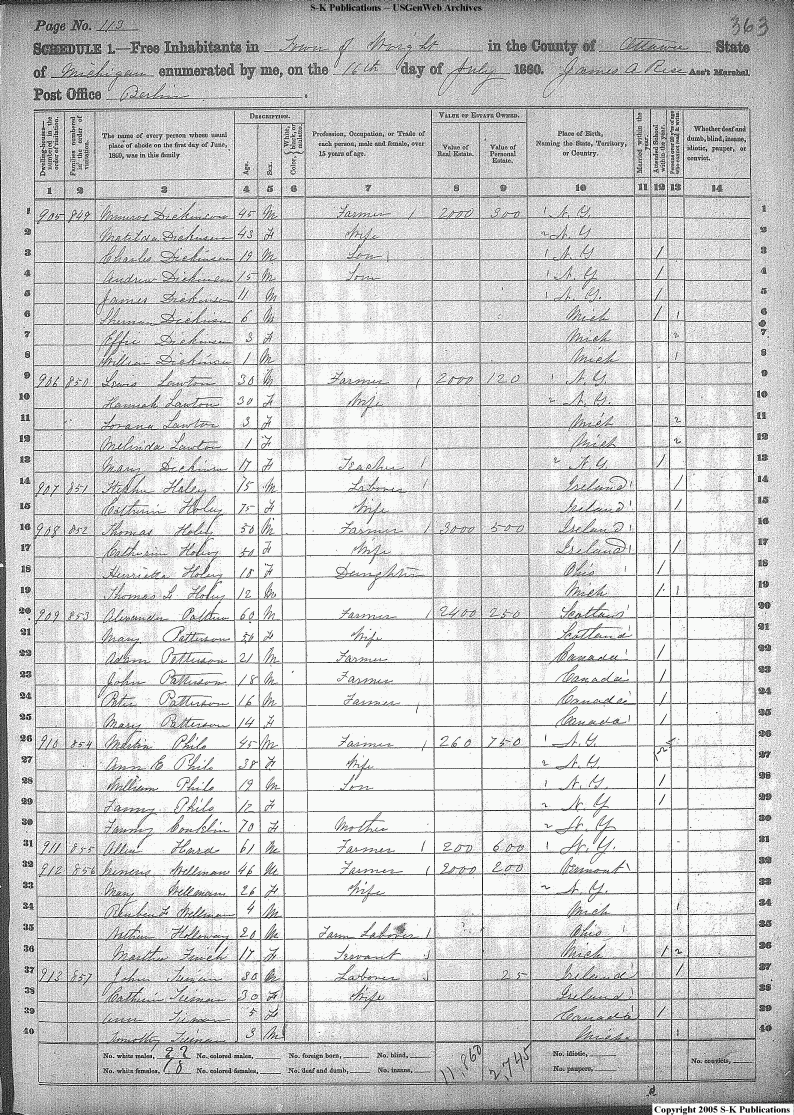 S-K Publications – USGenWeb Archives
Page No. 113
363
SCHEDULE 1.—Free Inhabitants in Town of Wright in the County of Ottawa State
of Michigan enumerated by me, on the 16th day of July 1860. James A Rice Ass't Marshal.
Post Office Berlin
DESCRIPTION. VALUE OF ESTATE OWNED.
Dwelling-houses—numbered in the order of visitation. Families numbered in the order of visitation. The name of every person whose usual place of abode on the first day of June, 1860, was in this family Age. Sex. Color, White, black, or mulatto Profession, Occupation, or Trade of each person, male and female, over 15 years of age. Value of Real Estate. Value of Personal Estate. Place of Birth, Naming the State, Territory, or Country. Married within the year. Attended School within the year. Whether deaf and dumb, blind, insane, idiotic, pauper, or convict.
1 2 3 4 5 6 7 8 9 10 11 12 13 14
1 905 849 Dickinson 45 M Farmer 1 2000 300 1 N.Y. 1
2 Matilda Dickinson 43 F Wife 2 N.Y 2
3 Charles Dickinson 19 M Son 1 1 N.Y. 1 3
4 Andrew Dickinson 15 M Son 1 N.Y. 1 4
5 James Dickinson 11 M 1 N.Y. 1 5
6 Sherman Dickinson 6 M Mich 1 1 6
7 Effie Dickinson 3 F Mich 2 7
8 William Dickinson 1 M Mich 1 8
9 906 850 Lewis Lawton 30 M Farmer 1 2000 120 1 N.Y. 9
10 Hannah Lawton 30 F Wife 2 N.Y. 10
11 Lovana Lawton 3 F Mich 2 11
12 Melinda Lawton 1 F Mich 2 12
13 Mary Dickinson 17 F Teacher 1 2 N.Y. 1 13
14 907 851 Stephn Holey 75 M Laborer 1 Ireland 1 14
15 Cathrin Holey 75 F Wife Ireland 1 15
16 908 852 Thomas Holey 50 M Farmer 1 3000 500 Ireland 16
17 Catherin Holey 50 F Wife Ireland 1 17
18 Henrietta Holey 18 F Daughter Ohio 1 18
19 Thomas L Holey 12 M Mich 1 1 19
20 909 853 Alexander Patterson 60 M Farmer 1 2400 250 Scotland 20
21 Mary Patterson 50 F Wife Scotland 21
22 Adam Patterson 21 M Farmer Canada 1 22
23 John Patterson 18 M Farmer Canada 1 23
24 Peter Patterson 16 M Farmer Canada 1 24
25 Mary Patterson 14 F Canada 1 25
26 910 854 Martin Philo 45 M Farmer 1 260 750 1 N.Y. 26
27 Ann E Philo 38 F Wife 2 N.Y. 27
28 William Philo 19 M Son 1 N.Y 1 28
29 Fanny Philo 12 F 2 N.Y 1 29
30 Fanny Conklin 70 F Mother 2 N.Y. 30
31 911 855 Allen Hard 61 M Farmer 1 200 600 1 N.Y. 31
32 912 856 Wellman 46 M Farmer 1 2000 200 Vermont 32
33 Mary Wellman 26 F Wife 2 N.Y. 33
34 Reuben F Wellman 4 M Mich 1 34
35 Holloway 20 M Farm Laborer 1 Ohio 35
36 Martha Finch 17 F Servant Mich 1 2 36
37 913 857 John 30 M Laborer 25 Ireland 1 37
38 Catherin 30 F Wife Ireland 38
39 Ann 5 F Canada 1 39
40 Timothy 3 M Mich 1 40
No. white males, 22 No. colored males, No. foreign born, No. blind, 11,860 2,745 No. idiotic,
No. white females, 18 No. colored females, No. deaf and dumb, No. insane, No. paupers, No. convicts,
Copyright 2005 S-K Publications